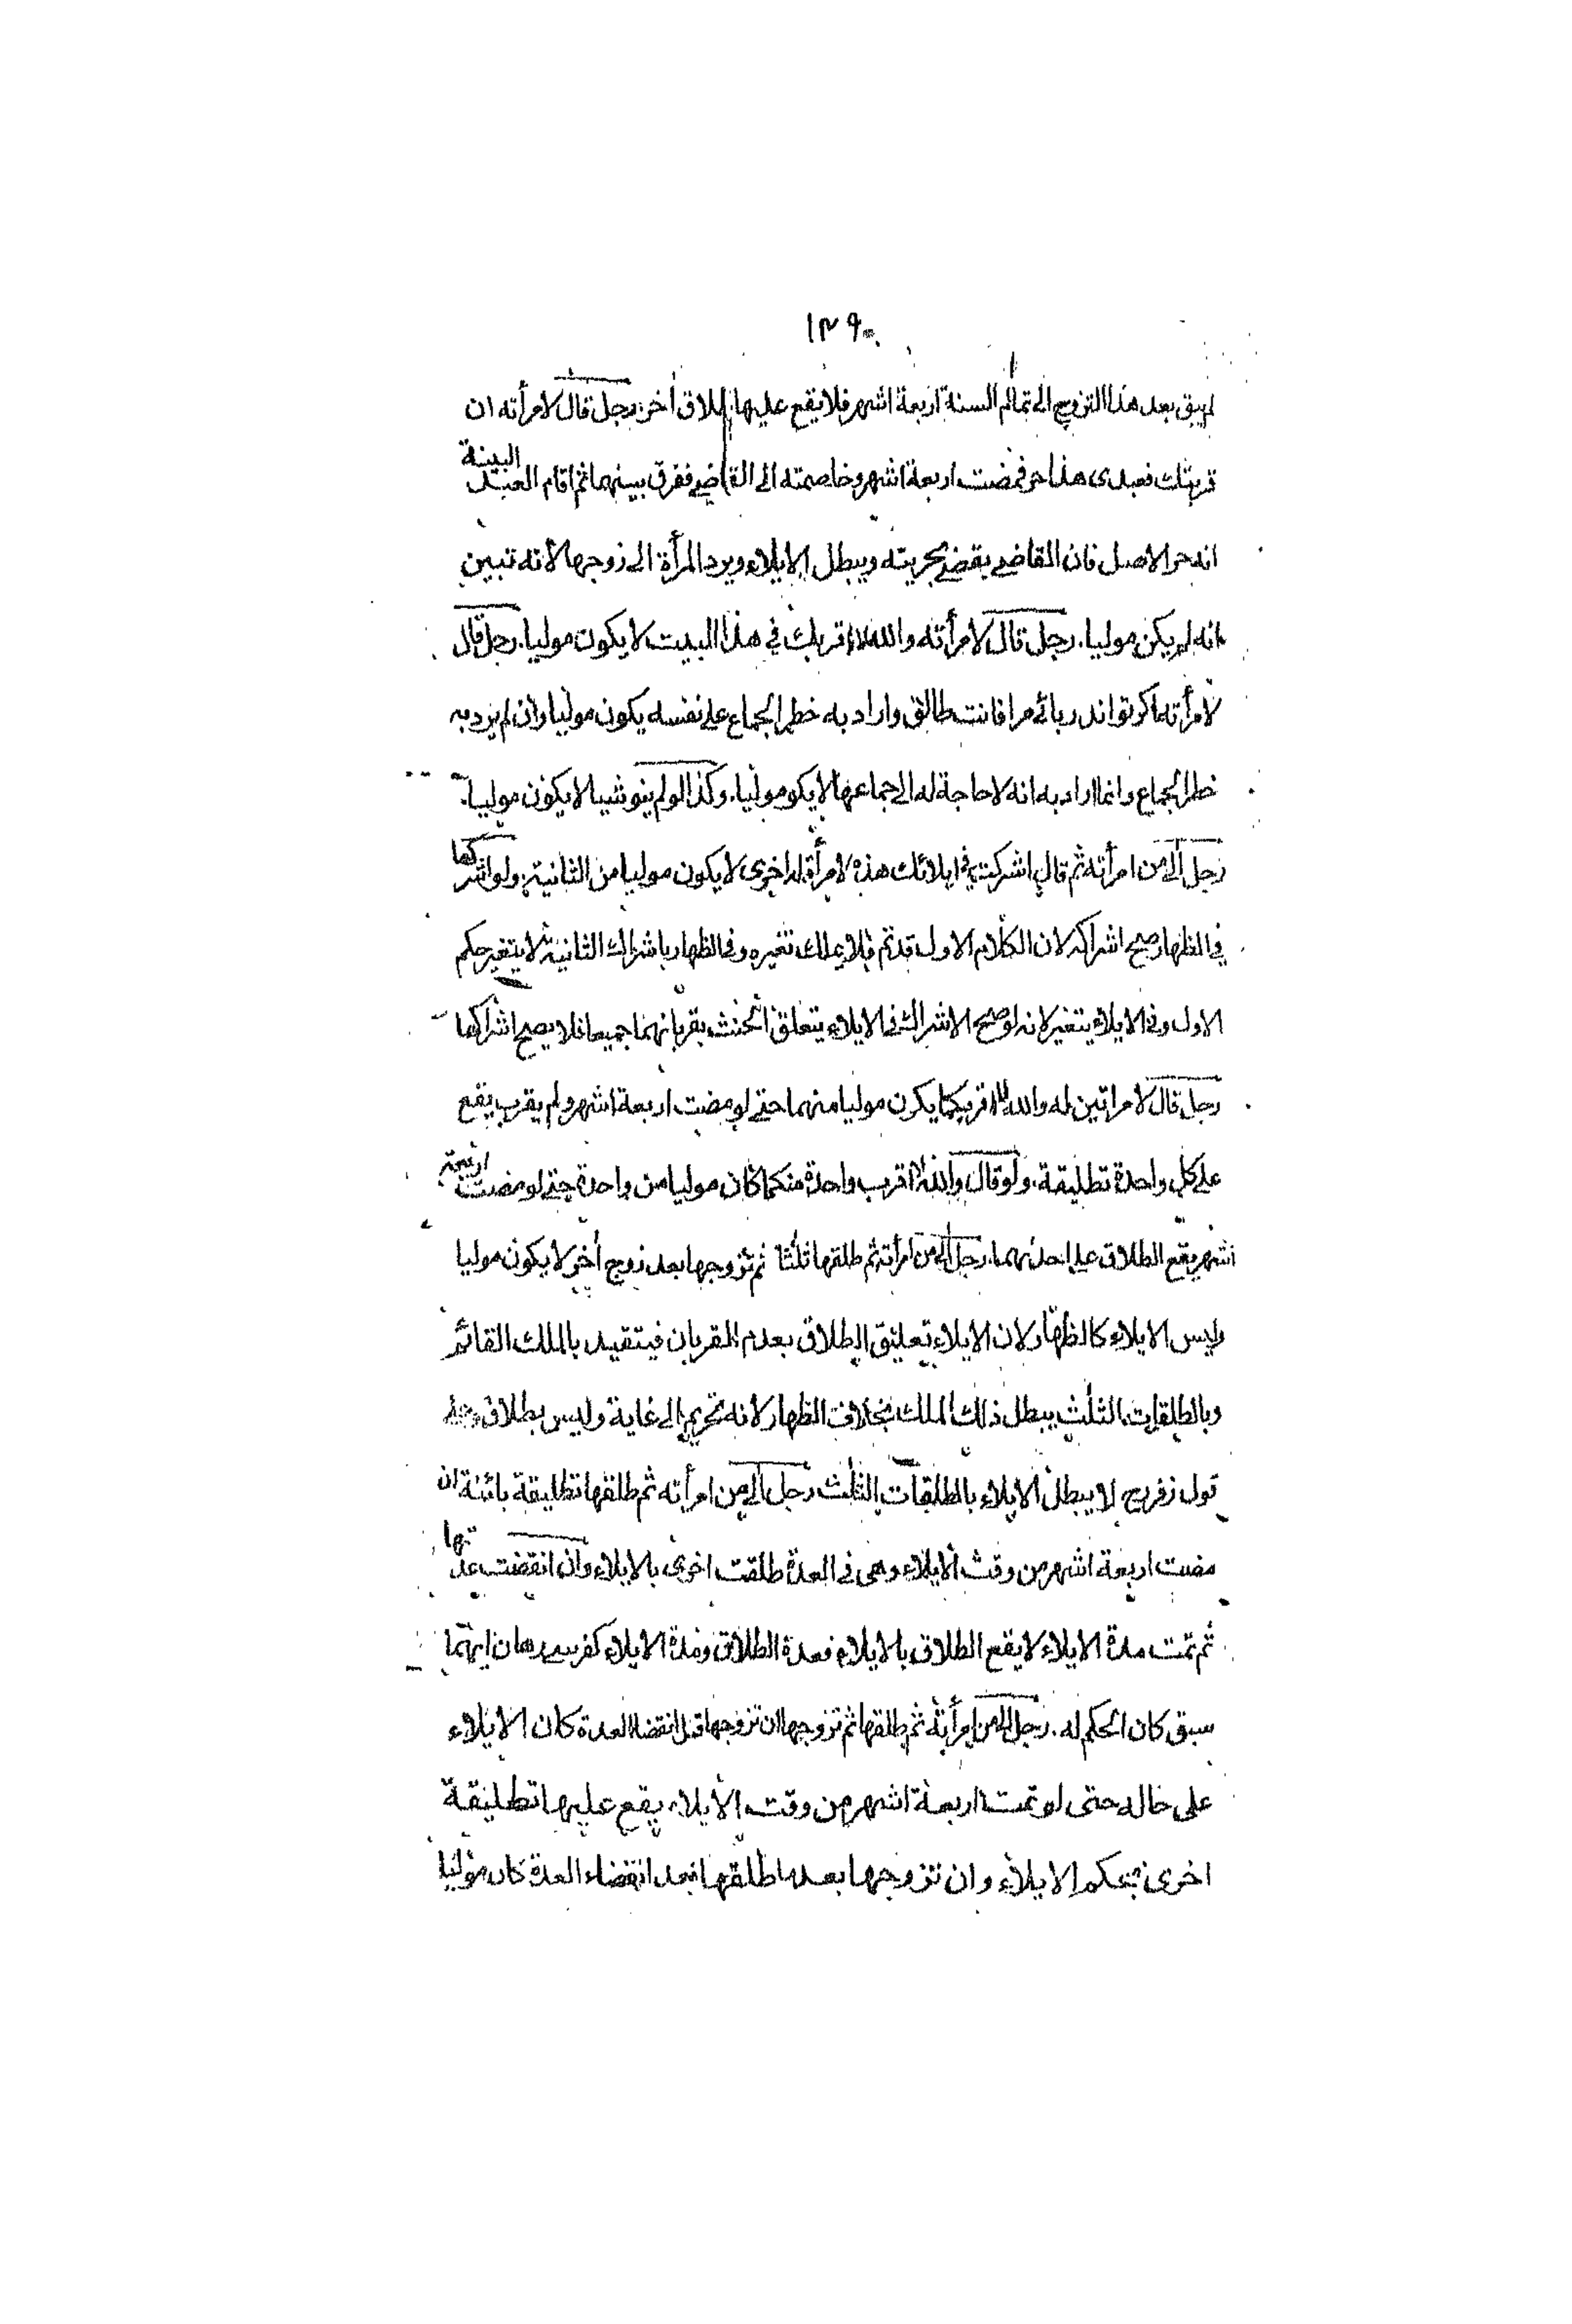 ١٣٩٠
لم يبق بعد هذا التزوج الى تمام السنة اربعة اشهر فلا يقع عليها طلاق أخر. رجل قال لامرأته ان
قربتك فعبدى هذا حر فمضت اربعة اشهر وخاصمته الى القاضي ففرق بينهما ثم اقام العبد البينة
انه حر الاصل فان القاضي يقضي بحريته ويبطل الايلاء ويرد المرأة الى زوجها لأنه تبين
انه لم يكن موليا. رجل قال لامرأته والله لا اقربك في هذا البيت لا يكون موليا. رجل قال
لامرأته اكر تو اندر بائے مرا فانت طالق واراد به خطر الجماع على نفسه يكون موليا وان لم يرد به
خطر الجماع وانما اراد به انه لا حاجة له الى جماعها لا يكو موليا. وكذا لو لم ينو شيا لا يكون موليا.
رجل الى من امرأته ثم قال اشركت في ايلائك هذه لامرأة له اخرى لا يكون موليا من الثانية. ولو اشركها
في الظهار صح اشراكه لان الكلام الاول قد تم فلا يملك تغيره وفى الظهار باشراك الثانية لا يتغير حكم
الاول وفى الايلاء يتغير لانه لو صح الاشراك فى الايلاء يتعلق الحنث بقربانهما جميعا فلا يصح اشراكها
رجل قال لامراتين له والله لا اقربكما يكون موليا منهما حتى لو مضت اربعة اشهر ولم يقرب يقع
على كل واحدة تطليقة. ولو قال والله لا اقرب واحدة منكما كان موليا من واحدة حتى لو مضت اربعة
اشهر يقع الطلاق على احدهما. رجل الى من امرأته ثم طلقها ثلثا ثم تزوجها بعد زوج أخر لا يكون موليا
وليس الايلاء كالظهار لان الايلاء تعليق الطلاق بعدم القربان فيتقيد بالملك القائم
وبالطلقات الثلث يبطل ذلك الملك بخلاف الظهار لأنه تحريم الى غاية وليس بطلاق وعلى
قول زفر رح لا يبطل الايلاء بالطلقات الثلث رجل الى من امرأته ثم طلقها تطليقة بائنة ان
مضت اربعة اشهر من وقت الايلاء وهى فى العدة طلقت اخرى بالايلاء وان انقضت عدتها
ثم تمت مدة الايلاء لا يقع الطلاق بالايلاء فعدة الطلاق ومدة الايلاء كفرسي رهان ايهما
سبق كان الحكم له. رجل الى من امرأته ثم طلقها ثم تزوجها ان تزوجها قبل انقضا العدة كان الايلاء
على حاله حتى لو تمت اربعة اشهر من وقت الايلاء يقع عليها تطليقة
اخرى بحكم الايلاء وان تزوجها بعد ما طلقها بعد انقضاء العدة كان موليا